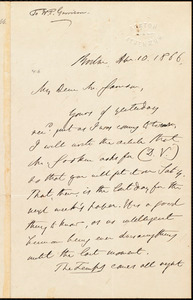 To W. P. Garrison
Boston 10. 1866
My Dear Mr Garrison
Yours of yesterday
rec'd just as I was coming to town.
I will write the article that
Mr asks for
that you will get it on
That, then, is the last day for the
next week's paper. It is a good
thing to know, as no intelligent
human being ever does anything
until the last moment.
The comes all right